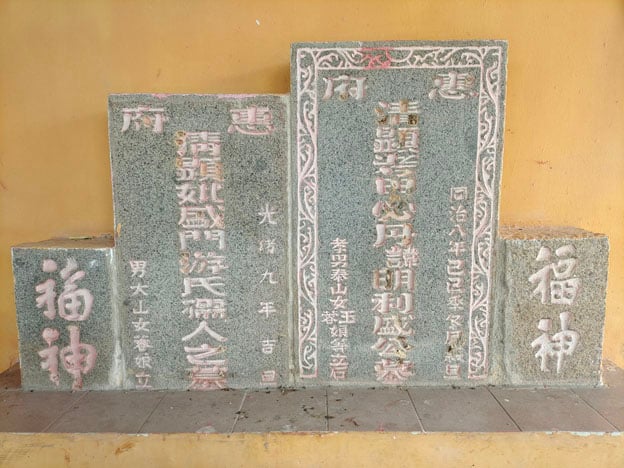 福神
惠府
同治八年己巳冬月旦
清顯考甲必丹諱明利盛公墓
孝男泰山女玉娘等立石
惠府
光緒九年吉旦
清顯妣盛門游氏孺人之墓
男大山女春娘立
福神